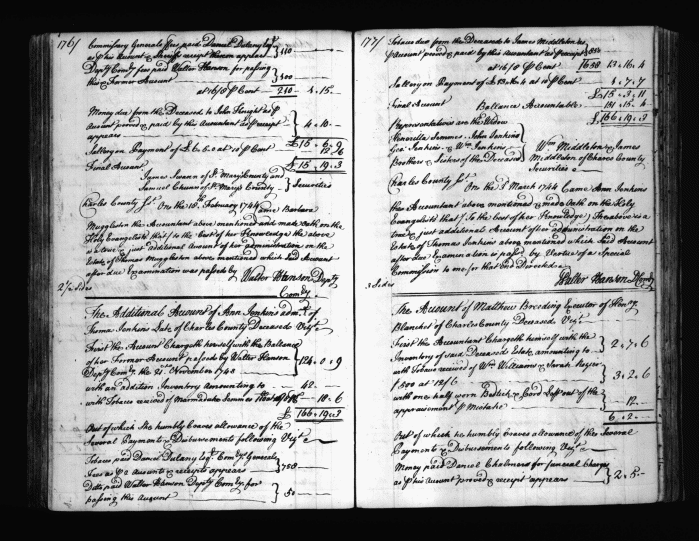 176/
Commissary Generals ffees paid Daniel Dulany Esqr
as p his account & receipt thereon appears } 110
Depty Comry fees paid Walter Hanson for passing
this & Former Account } 100
at 16/8 p Cent 210 - 1.15 -
Money due from the Deceased to John
Account proved & paid by the Accountant as p receipt
appears } 4.10.
Sallery on Payment of £6.6.0 at 10 p Cent
Finial Account £15.19.3
James Swann of St Marys County and
Samuel Chunn of St Marys County } Securities
Charles County Sst.
On the 15th February 1744 Came Barbara
Muggleston the Accountant above mentioned and made Oath on the
Holy Evangelists that to the best of her Knowledge the above
is a true & just additional Account of her administration on the
Estate of Thomas Muggleston above mentioned which said Account
after due Examination was passed by Walter Hanson Depty
Comry
2 1/2 Sides
The Additional Account of Ann Jenkins admrx of
Thomas Jenkins Late of Charles County Deceased Vizt
First the Accountant Chargeth herself with the Ballance
of her Former Account passed by Walter Hanson
Depty Comry the 21st November 1740 } 124.0.9
with an addition Inventory amounting to 42.
with Tobacco received of Marmaduke Simms 10.6
£ 166.19.3
Out of which She humbly Craves allowance of the
Several Payments & Disbursements following Vizt
Tobacco paid Daniel Dulany Esqr Comry General
Fees as p a Account & receipts appears } 750
Ditto paid Walter Hanson Depty Comry for
passing this Account } 50
177/
Tobacco due from the Deceased to James Middleton as
p Account proved & paid by this Accountant as p receipt
at 16/8 p Cent 1658 13.16.4
Sallery on Payment of £13.16.4 at 10 p Cent 1.7.7
£15.3.11
Finial Account Ballance Accountable 151.15.4
£166.19.3
Representatives are the Widow
Jemmes, John Jenkins
Geo: Jenkins & Wm Jenkins
Brother & Sister of the Deceased
Wm Middleton & James
Middleton of Charles County
Securities
Charles County Sst.
On the March 1744 Came Ann Jenkins
the Accountant above mentioned & made Oath on the Holy
Evangelists that To the best of her Knowledge the above is a
true & just additional Account of her administration on the
Estate of Thomas Jenkins above mentioned which Said Account
after due Examination is passed by Vertue of a Special
Commission to me for that End Directed
Walter Hanson D Comry
3 Sides
The Account of Matthew Breeding Executor of Henry
Blanchet of Charles County Deceased Vizt
First the Accountant Chargeth himself with the
Inventory of said Deceased Estate amounting to } 2.7.6
with Tobacco received of Wm Williams & Sarah Keyser
1500 at 12/6 } 3.2.6
with one half worn & Cord left out of the
appraisement p Mistake } 12.
6.2.
Out of which he humbly Craves allowance of the Several
Payments & Disbursements following Vizt
Money paid Daniel Chalmers for funeral Charges
as p his Account proved & receipt appears } 2.5.